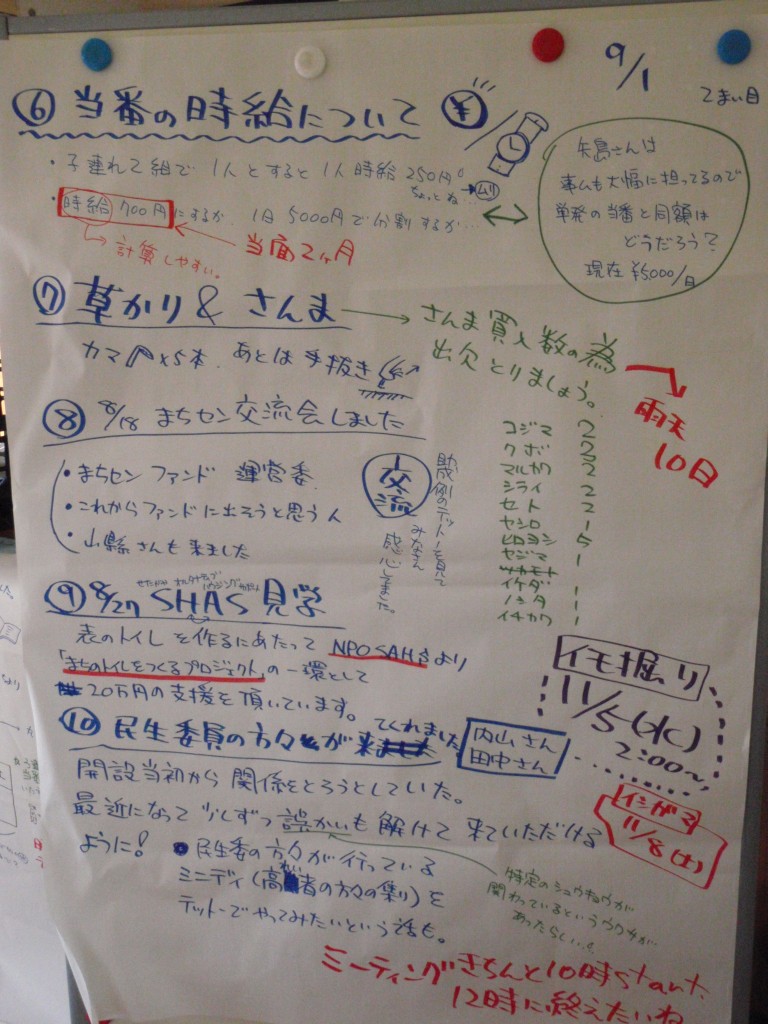 9/1
2まい目
⑥ 当番の時給について
¥
・子連れ2組で 1人とすると1人時給 250円。
ちょっとね… ムリ
・時給 700円にするか、1日 5000円で分割するか…
計算しやすい。
当面2ヶ月
矢島さんは
事ムも大幅に担ってるので
単発の当番と同額は
どうだろう？
現在 ¥5,000/日
⑦ 草かり & さんま
さんま買う数の為
出欠とりましょう。
雨天
10日
カマ ×5本. あとは 手抜き
コジマ 2
クボ 2
マルカワ 2
シライ 2
セト 2
ヤシロ 1
ヒロヨシ 5
ヤジマ 1
イケダ 1
イチカワ 1
⑧ 8/18 まちセン交流会しました
・まちセン ファンド 運営委
・これからファンドに出そうと思う人
・山縣さんも来ました
交流
助成例のテットーを見て
みなさん
感心してました。
⑨ 8/27 SHAS 見学
表のトイレを作るにあたって NPO SAHSより
「まちのトイレをつくるプロジェクト」の一環として
20万円の支援を頂いています。
⑩ 民生委員の方々が来てくれました
内山さん
田中さん
開設当初から関係をとろうとしていた。
最近になって少しずつ誤かいも解けて来ていただける
ように！
●民生委の方々が行っている
ミニデイ(高れい者の方々の集り)を
テットーでやってみたいという話も。
特定のシュウキョウが
関わっているというウワサが
あったらしい…
イモ掘り
11/5(水)
2:00〜
11/8(土)
ミーティングきちんと10時start.
12時に終えたいね